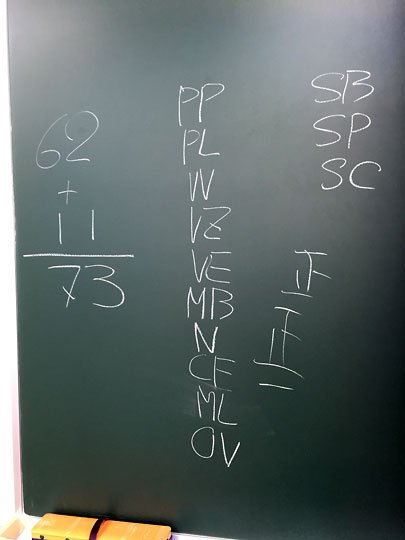 62
+
11
73
PP
PL
W
VZ
VE
MB
N
CF
ML
OV
SB
SP
SC